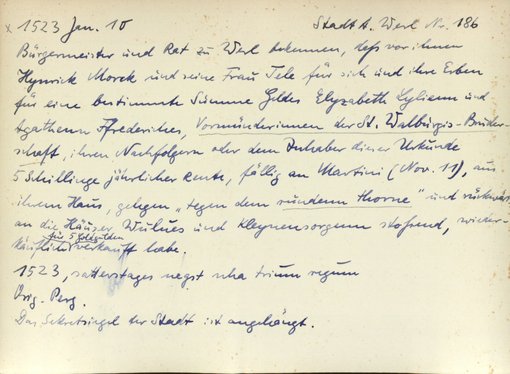 x 1523 Jan. 10 Stadt A. Werl Nr. 186
Bürgermeister und Rat zu Werl bekennen, daß vor ihnen
Hynrick Morck und seine Frau Tele für sich und ihre Erben
für eine bestimmte Summe Geldes Elyzabeth Lyliem und
Agathemn Ffrederiches, Vormünderinnen der St. Walburgis-Bruder-
schaft, ihren Nachfolgern oder dem Inhaber dieser Urkunde
5 Schillinge jährlicher Rente, fällig an Martini (Nov. 11), aus
ihrem Haus, gelegen "tegen dem rundenn thorne" und rückwärts
an die Häuser Wulues und Kleynensorgenn stoßend, wieder-
käuflich für 5 Goldgulden verkauft habe.
1523, satterstages negst nha trium regum
Orig. Perg.
Das Sekretsiegel der Stadt ist angehängt.